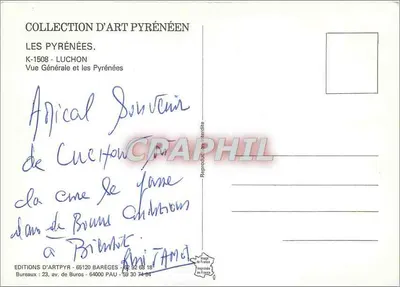 COLLECTION D'ART PYRÉNÉEN
LES PYRÉNÉES.
K-1508 - LUCHON
Vue Générale et les Pyrénées
Amical Souvenir
de LUCHON
CRAPHIL
la cure se passe
dans de Bonnes Conditions
à Bientôt
EDITIONS D'ARTPYR - 65120 BARÈGES
Bureaux : 23, av. de Buros - 64000 PAU